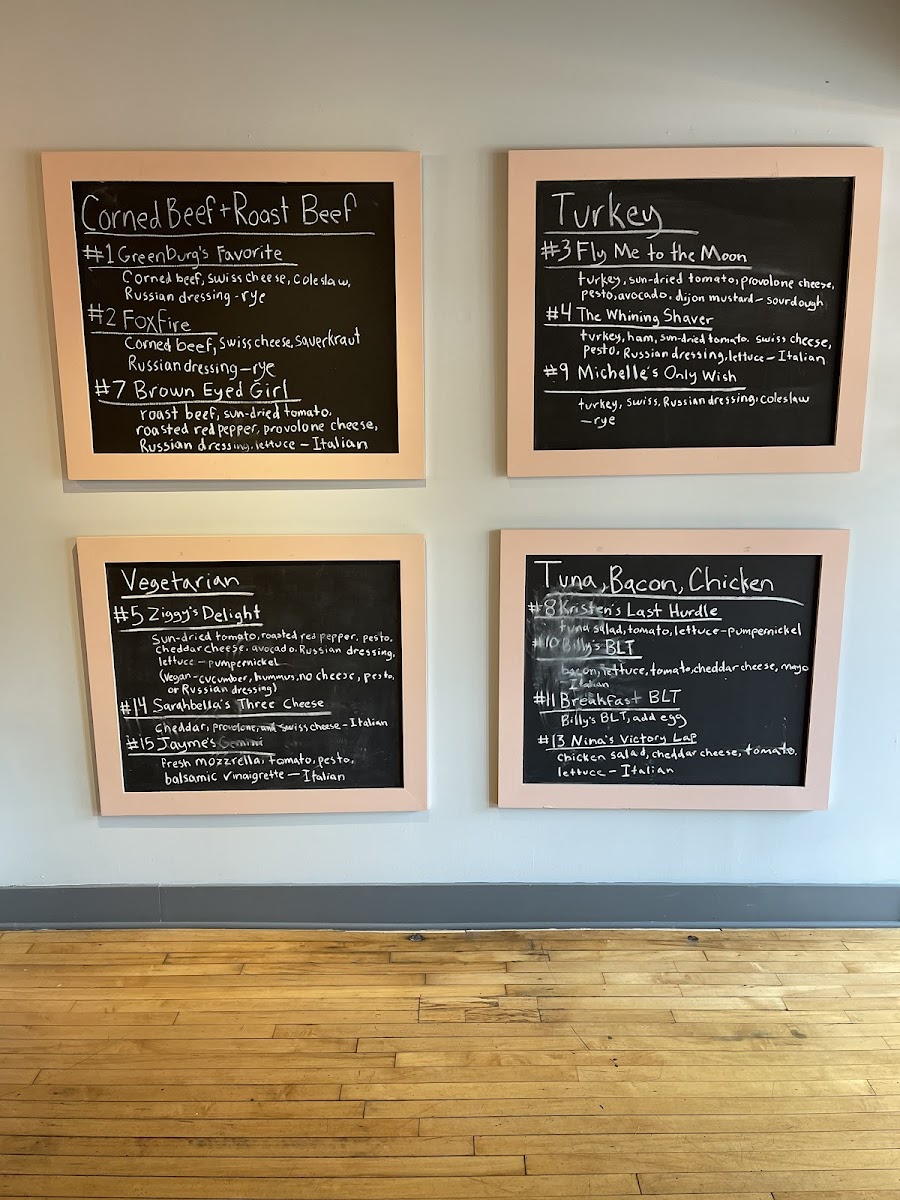 Corned Beef + Roast Beef
#1 Greenburg's Favorite
Corned beef, swiss cheese, coleslaw,
Russian dressing - rye
#2 Foxfire
Corned beef, swiss cheese, sauerkraut
Russian dressing - rye
#7 Brown Eyed Girl
roast beef, sun-dried tomato,
roasted red pepper, provolone cheese,
Russian dressing, lettuce - Italian
Turkey
#3 Fly Me to the Moon
turkey, sun-dried tomato, provolone cheese,
pesto, avocado, dijon mustard - sourdough
#4 The Whining Shaver
turkey, ham, sun-dried tomato, swiss cheese,
pesto, Russian dressing, lettuce - Italian
#9 Michelle's Only Wish
turkey, swiss, Russian dressing, coleslaw
- rye
Vegetarian
#5 Ziggy's Delight
Sun-dried tomato, roasted red pepper, pesto,
cheddar cheese, avocado, Russian dressing,
lettuce - pumpernickel
(Vegan - cucumber, hummus, no cheese, pesto,
or Russian dressing)
#14 Sarahbella's Three Cheese
Cheddar, provolone, and swiss cheese - Italian
#15 Jayme's Gemini
fresh mozzrella, tomato, pesto,
balsamic vinaigrette - Italian
Tuna, Bacon, Chicken
#8 Kristen's Last Hurdle
tuna salad, tomato, lettuce - pumpernickel
#10 Billy's BLT
bacon, lettuce, tomato, cheddar cheese, mayo
- Italian
#11 Breakfast BLT
Billy's BLT, add egg
#13 Nina's Victory Lap
chicken salad, cheddar cheese, tomato,
lettuce - Italian